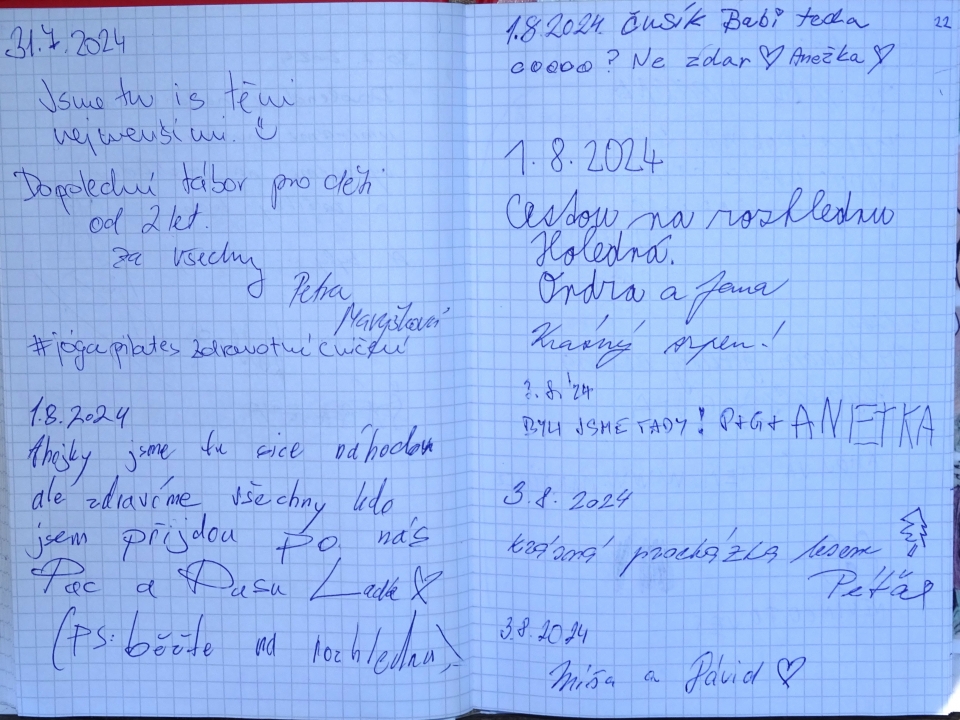 31.7.2024
Jsme tu i s těmi
nejmenšími.
Dopolední tábor pro děti
od 2 let.
za všechny
Petra
#jóga pilates zdravotní cvičení
1.8.2024
Ahojky jsme tu sice náhodou
ale zdravíme všechny kdo
jsem přijdou po nás
a Ladě ♡
(PS: běžte na rozhlednu)
22
1.8.2024. Čusík Babi teda
ooooo? Ne zdar ♡ Anežka ♡
1.8.2024
Cestou na rozhlednu
Holedná.
Ondra a Jana
Krásný srpen!
8. '24
BYLI JSME TADY! P+G+ANIETKA
3.8.2024
krásná procházka lesem
Péťáš
3.8.2024
Míša a Dávid ♡